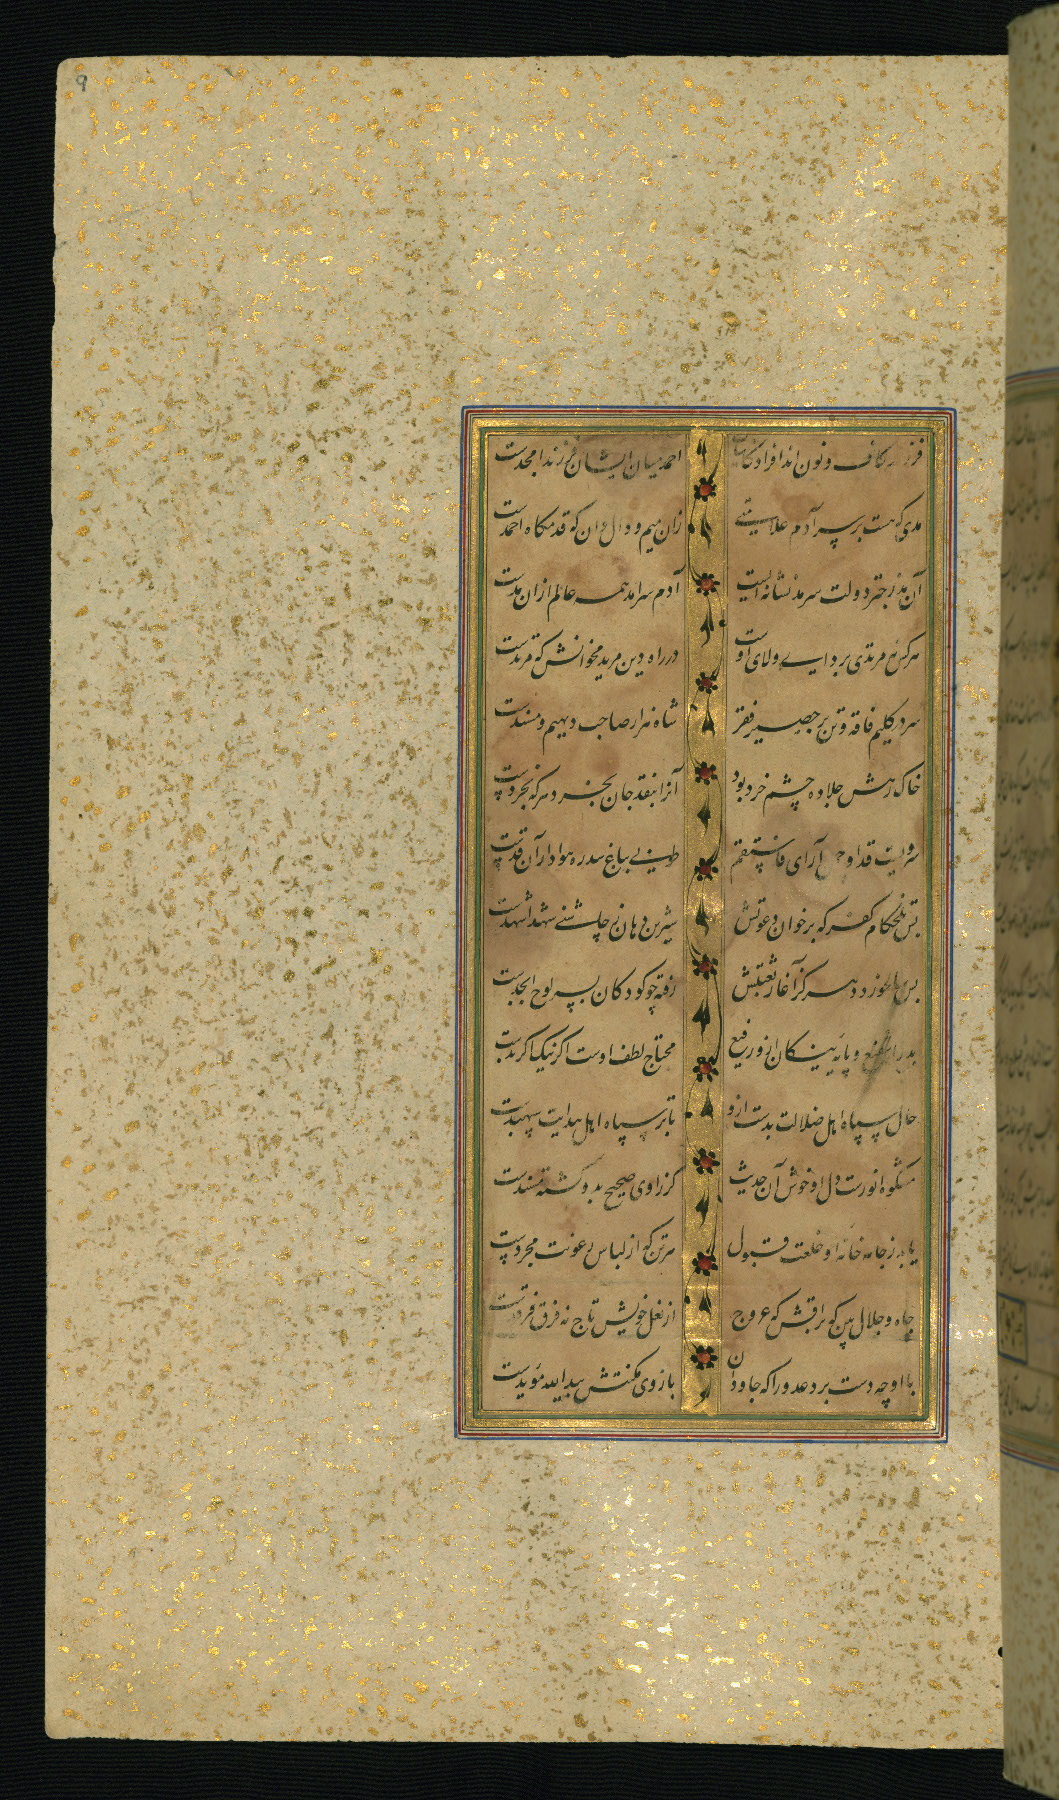 ۹
فرزند کاف و نون اند افراد کاینات احمد میان ایشان فرزند امجدست
مدی که هست بر سر آدم علامتیست زان میم و دال دان که قدمگاه احمدست
آن مد ز چتر دولت سرمد نشانه ایست آدم سرآمد همه عالم ازان مدست
هر کس نه مرتدی بردای ولای اوست در راه دین مرید مخوانش که مرتدست
سر در گلیم فاقه و تن بر حصیر فقر شاه هزار صاحب دیهیم و مسندست
خاک رهش جلاده چشم خرد بود آنرا بنقد جان بخرد هر که بخردست
سرویست قد او چمن آرای فاستقم طوبی بباغ سدره هوادار آن قدست
بس تلخکام کفر که بر خوان دعوتش شیرین دهان ز چاشنی شهد اشهدست
پیر خرد در سر کز آغاز بعثتش رفته چو کودکان بسر لوح ابجدست
بد را شفیع و پایه نیکان ازو رفیع محتاج لطف اوست اگر نیک اگر بدست
حال سپاه اهل ضلالت بدست ازو تا بر سپاه اهل هدایت سپهبدست
مشکوة انورست دل او خوش آن حدیث کز راوی صحیح بدو گشته مسندست
یابد ز جامه خانه او خلعت قبول هر تن که از لباس رعونت مجردست
جاه و جلال بین که براقش گه عروج از نعل خویش تاج نه فرق فرقدست
با او چه دست برد عدو را که جاودان بازوی مکنتش بید الله مؤیدست